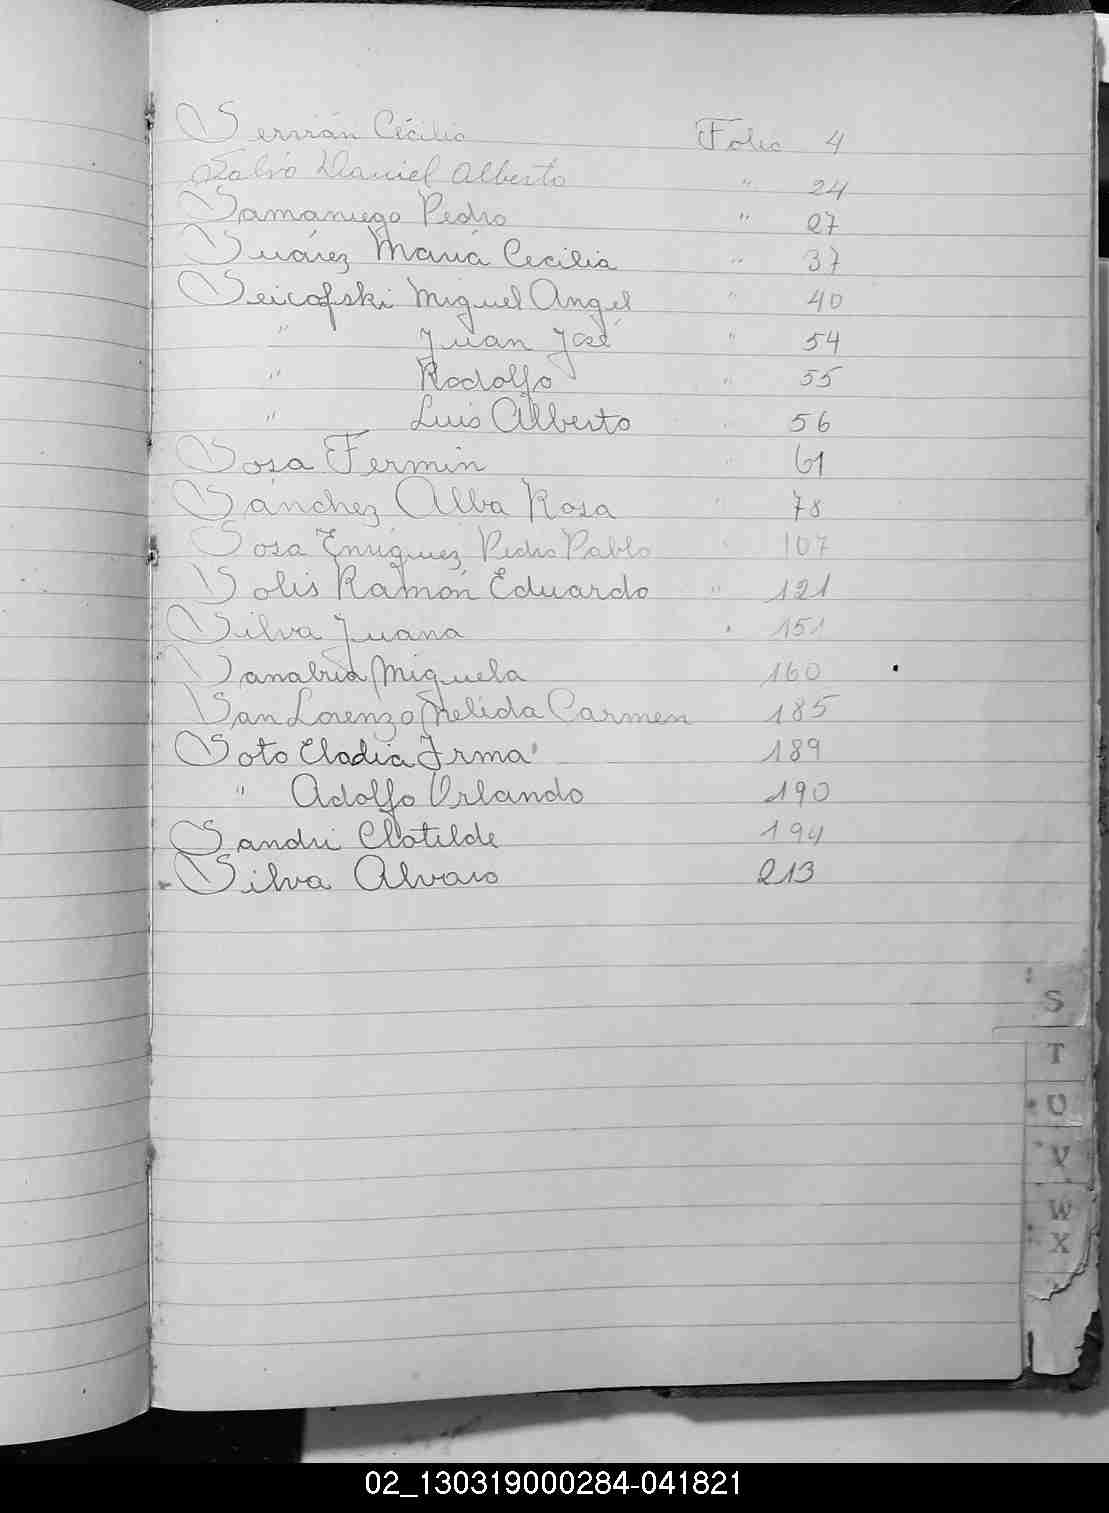 Servián Cécilio Folio 4
Salvó Daniel Alberto " 24
Samaniego Pedro " 27
Suárez Maria Cecilia " 37
Seicofski Miguel Angel " 40
" Juan José " 54
" Rodolfo " 55
" Luis Alberto " 56
Sosa Fermin " 61
Sánchez Alba Rosa " 78
Sosa Enriquez Pedro Pablo " 107
Solis Ramón Eduardo " 121
Silva Juana " 151
Sanabria Miguela 160
San Lorenzo Nelida Carmen 185
Soto Eladia Irma 189
" Adolfo Orlando 190
Sandri Clotilde 194
Silva Alvaro 213
S
T
U
V
W
X
02_130319000284-041821